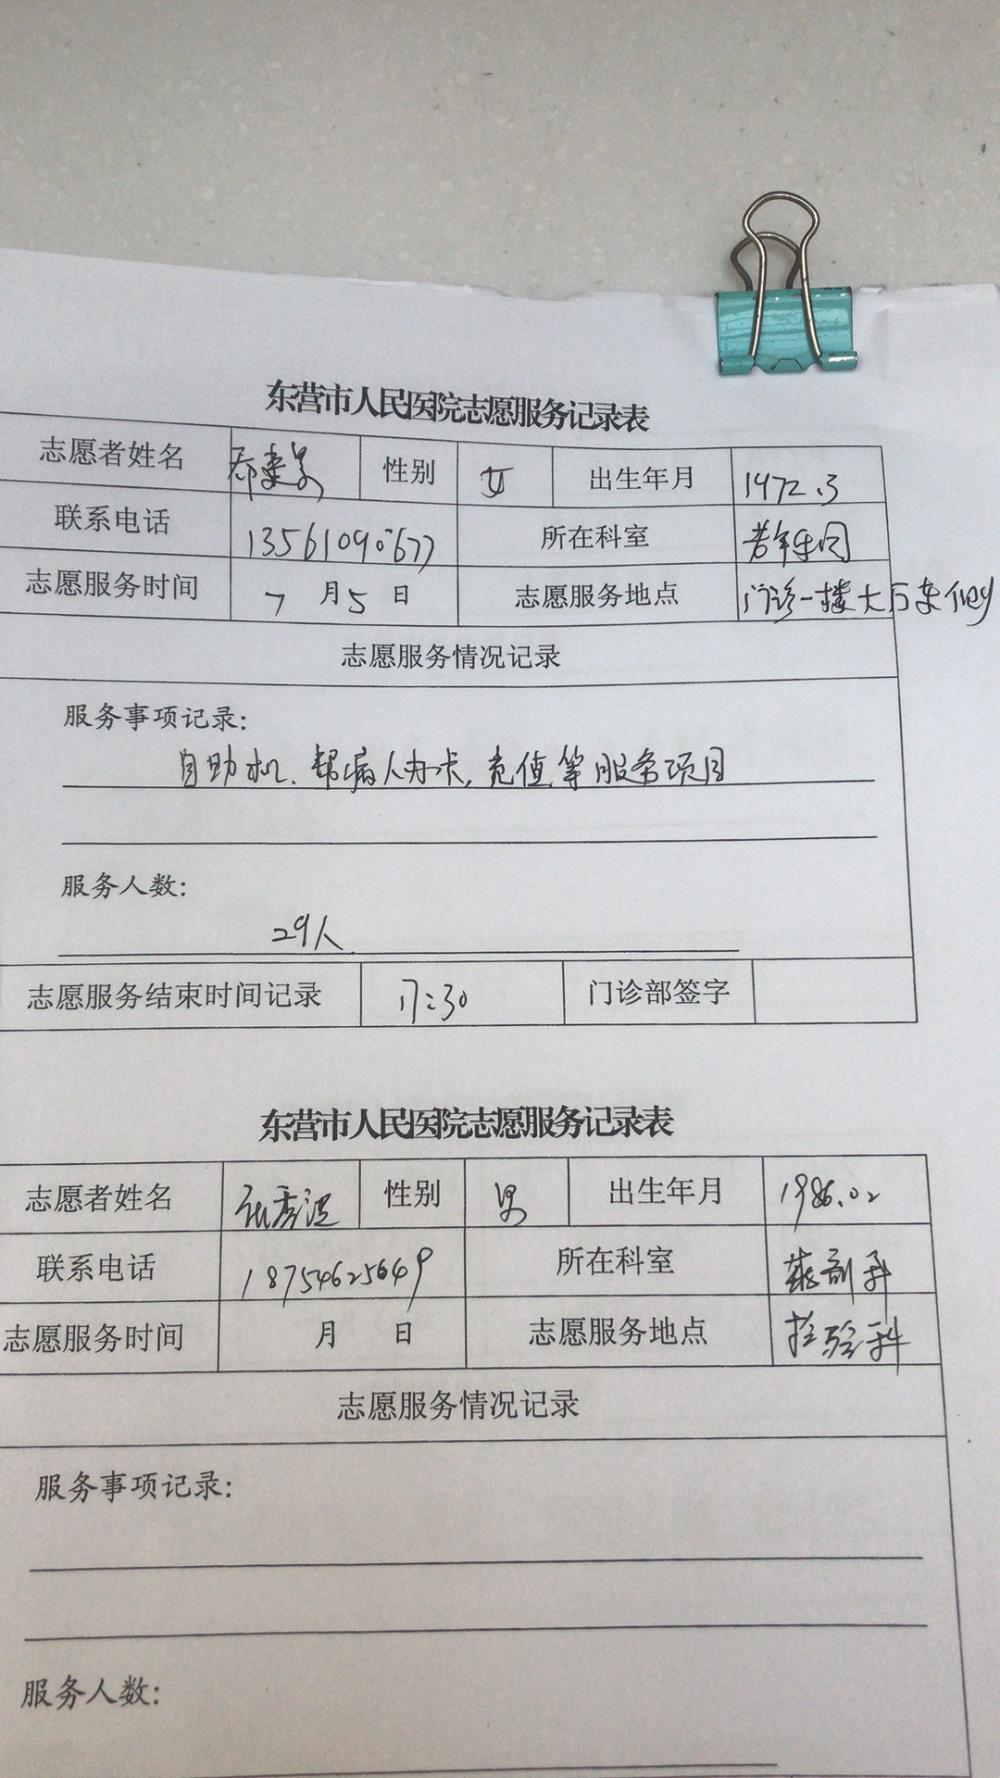 东营市人民医院志愿服务记录表
志愿者姓名 性别 女 出生年月 1972.3
联系电话 13561090677 所在科室
志愿服务时间 7月5日 志愿服务地点 门诊一楼大厅东侧
志愿服务情况记录
服务事项记录:
自助机、帮病人办卡,充值等服务项目
服务人数:
29人
志愿服务结束时间记录 17:30 门诊部签字
东营市人民医院志愿服务记录表
志愿者姓名 性别 男 出生年月 1986.02
联系电话 18754625649 所在科室
志愿服务时间 月 日 志愿服务地点 检验科
志愿服务情况记录
服务事项记录:
服务人数: